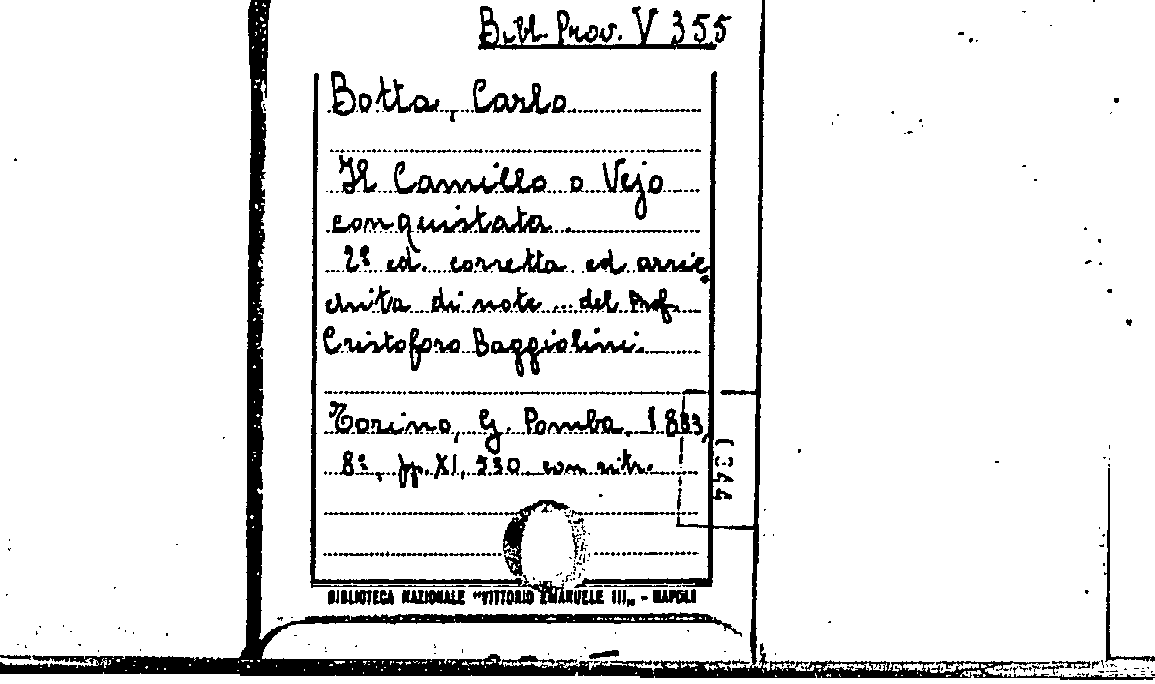 Bibl. Prov. V 355
Botta, Carlo
Il Camillo o Vejo
conquistata.
2ª ed. corretta ed arric
chita di note ... del Prof.
Cristoforo Baggiolini.
Torino, G. Pomba, 1833,
8°, pp. XI, 530 con ritr.
1344
BIBLIOTECA NAZIONALE "VITTORIO EMANUELE III„ - NAPOLI